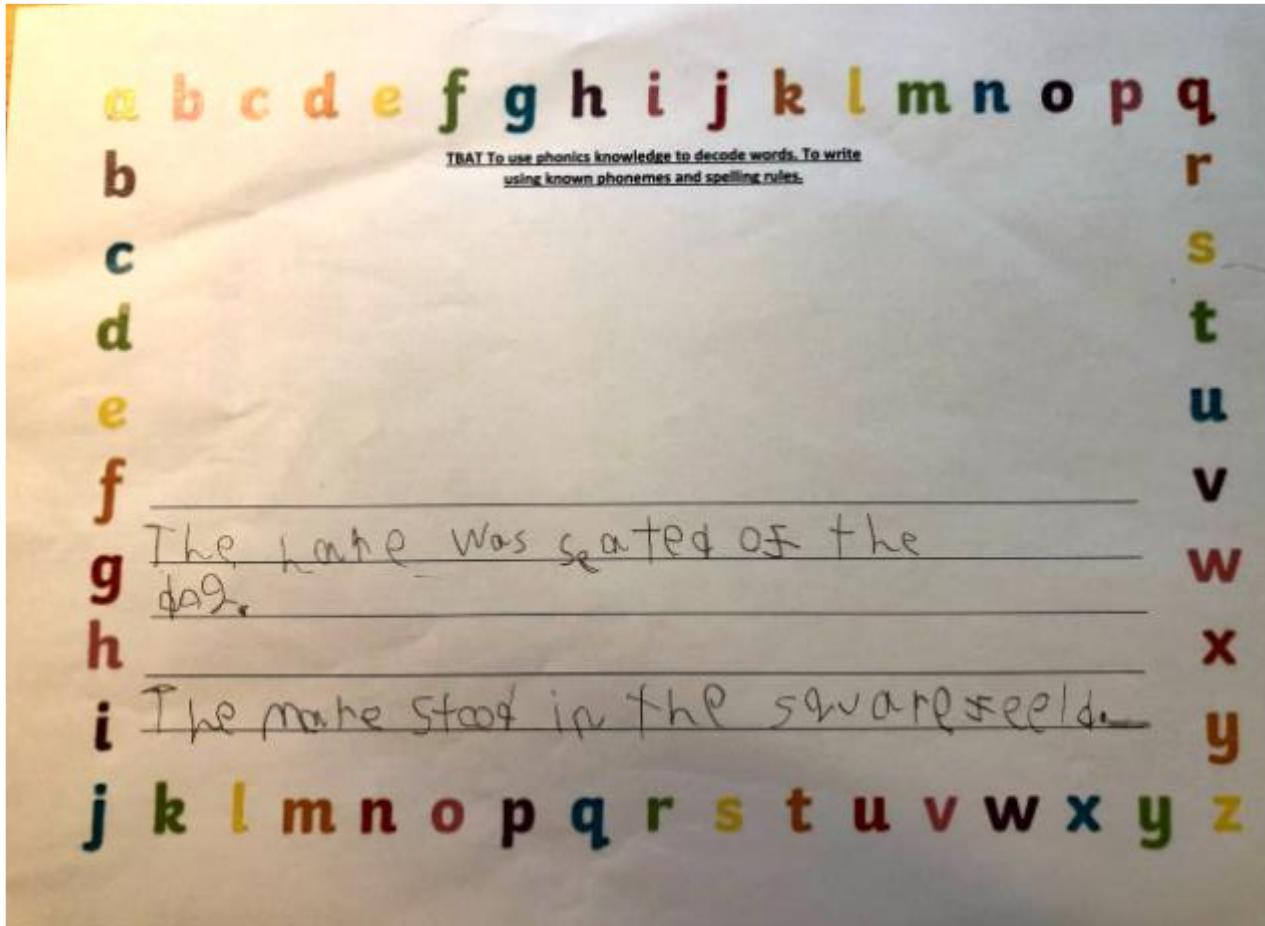 a b c d e f g h i j k l m n o p q
TBAT To use phonics knowledge to decode words. To write
using known phonemes and spelling rules.
b r
c s
d t
e u
f v
The hare was seated of the
g w
dog.
h x
The mare stood in the square feeld.
i y
j k l m n o p q r s t u v w x y z